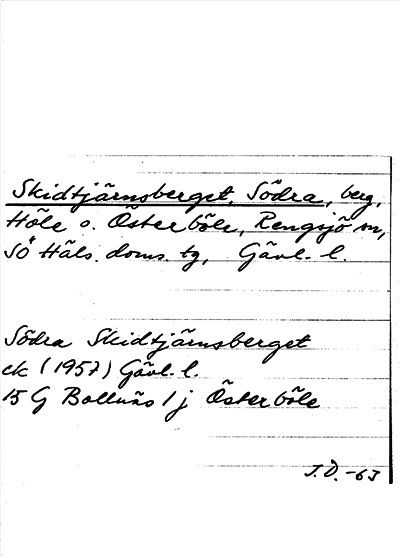 Skidtjärnsberget, Södra, berg,
Höle o. Österböle, Rengsjö sn,
SÖ Häls. doms. tg, Gävl. l.
Södra Skidtjärnsberget
ek (1957) Gävl. l.
15 G Bollnäs 1 j Österböle
J.D. -63